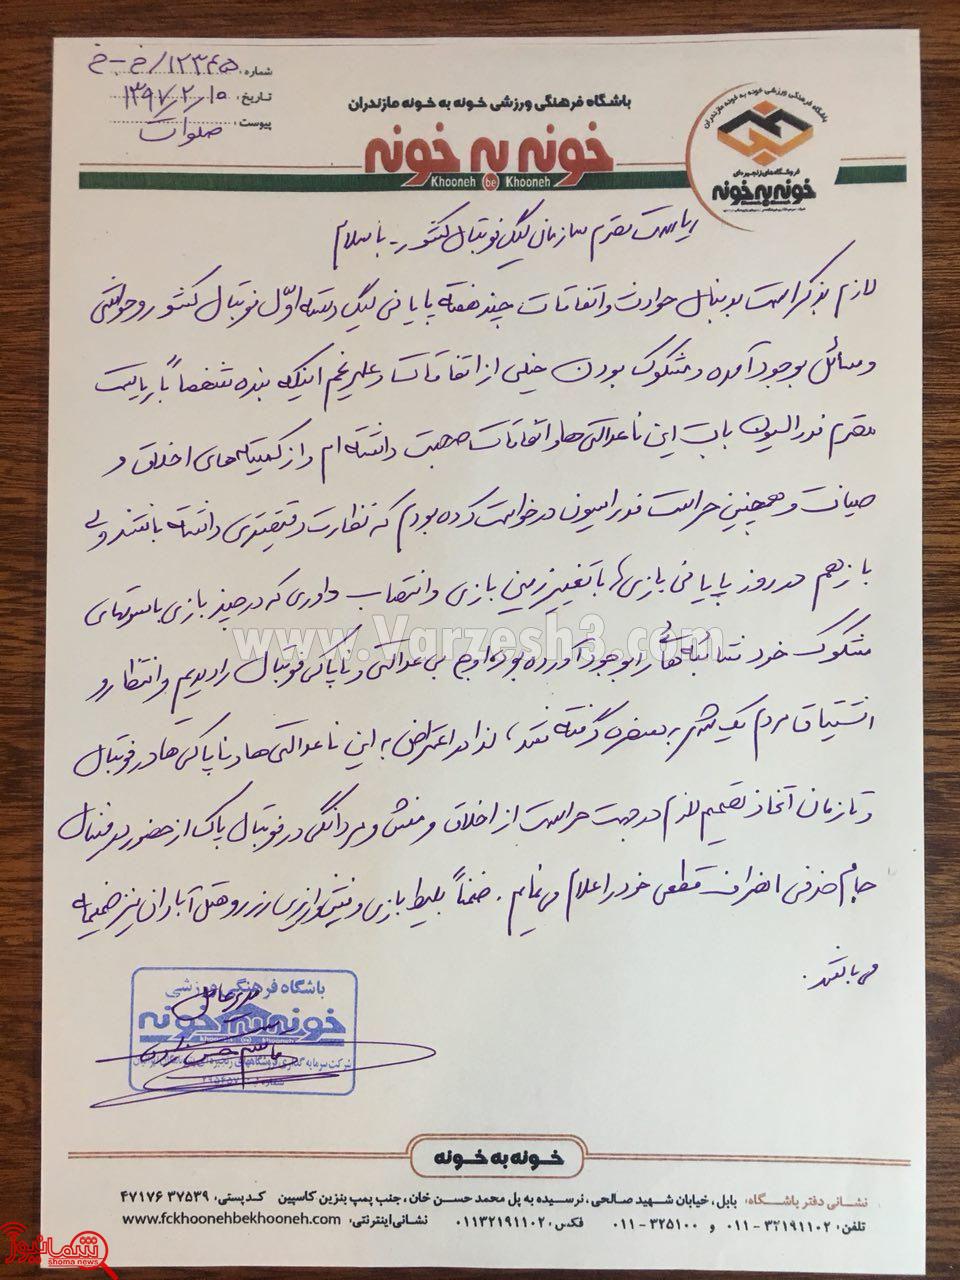 شماره: ۱۲۳۴۵/خ-خ
تاریخ: ۱۳۹۷/۲/۱۰
پیوست: صلوات
باشگاه فرهنگی ورزشی خونه به خونه مازندران
خونه به خونه
Khooneh be Khooneh
باشگاه فرهنگی ورزشی خونه به خونه مازندران
فروشگاه‌های زنجیره‌ای
خونه به خونه
ریاست محترم سازمان لیگ فوتبال کشور - با سلام
لازم بذکر است بدنبال حوادث و اتفاقات چند هفته پایانی لیگ دسته اول فوتبال کشور و حواشی
و مسائل بوجود آمده و مشکوک بودن خیلی از اتفاقات و علیرغم اینکه بنده شخصاً با ریاست
محترم فدراسیون بابت این ناعدالتی ها و اتفاقات صحبت داشته ام و از کمیته های اخلاق و
صیانت و همچنین حراست فدراسیون درخواست کرده بودم که نظارت دقیقتری داشته باشند ولی
باز هم در روز پایانی بازی ها با تغییر زمین بازی و انتصاب داوری که در چند بازی با سوتهای
مشکوک خود شائبه هائی را بوجود آورده بود اوج بی عدالتی و ناپاکی فوتبال را دیدیم و انتظار و
اشتیاق مردم یک شهر به سخره گرفته شد، لذا در اعتراض به این ناعدالتی ها و ناپاکی ها در فوتبال
و تا زمان اتخاذ تصمیم لازم در جهت حراست از اخلاق و منش و مردانگی در فوتبال پاک از حضور در فینال
جام حذفی انصراف قطعی خود را اعلام می نمایم. ضمناً بلیط بازی و فیش واریزی رزرو هتل آبادان نیز ضمیمه
می باشد.
www.Varzesh3.com
باشگاه فرهنگی ورزشی
مدیرعامل
خونه به خونه
شرکت سرمایه گذاری فروشگاههای زنجیره‌ای
خونه به خونه
نشانی دفتر باشگاه: بابل، خیابان شهید صالحی، نرسیده به پل محمد حسن خان، جنب پمپ بنزین کاسپین کدپستی: ۳۷۵۳۹ ۴۷۱۷۶
تلفن: ۳۲۱۹۱۱۰۲-۰۱۱ و ۳۲۵۱۰۰-۰۱۱ فکس: ۰۱۱۳۲۱۹۱۱۰۲ نشانی اینترنتی: www.fckhoonehbekhooneh.com
شمانیوز
shoma news